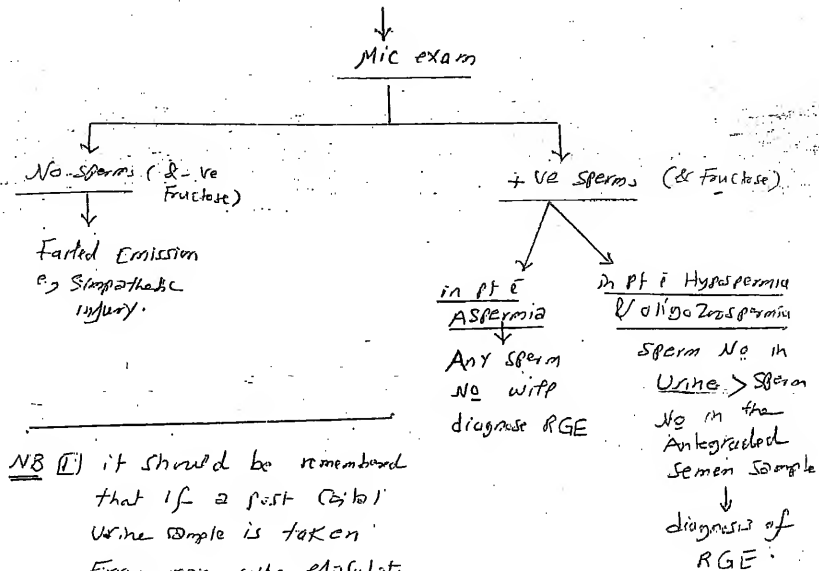 Mic exam
No sperms (& -ve
Fructose)
Failed Emission
e.g Simpathetic
injury.
+ ve sperms (& Fructose)
in pt c̄
ASpermia
Any sperm
No will
diagnose RGE
in pt c̄ Hypospermia
& oligozoospermia
sperm No in
Urine > sperm
No in the
Antegraded
semen sample
diagnosis of
RGE.
NB 1) it should be remembered
that if a post Coital
Urine sample is taken